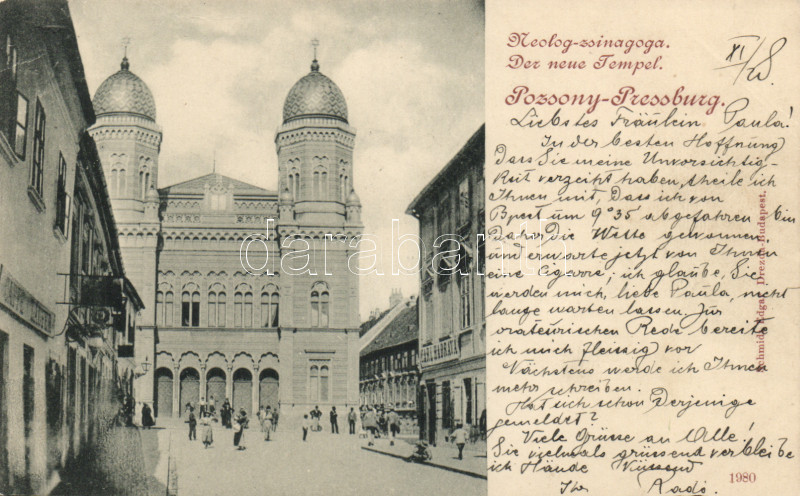 Neolog-zsinagoga.
Der neue Tempel.
XI/28
Pozsony-Pressburg.
Liebstes Fräulein Paula!
In der besten Hoffnung
dass Sie meine Unvorsichtig-
keit verzeiht haben, theile ich
Ihnen mit, dass ich von
Bpest um 9°35 abgefahren bin
Daher die Wette gewonnen
und erwarte jetzt von Ihnen
eine Cigarre; ich glaube, Sie
werden mich, liebe Paula, nicht
lange warten lassen. Zur
oratorischen Rede bereite
ich mich fleissig vor
Nächstens werde ich Ihnen
mehr schreiben.
Hat sich schon Derjenige
gemeldet?
Viele Grüsse an Alle!
Sie vielmals grüssend verbleibe
ich Hände küssend
Ihr Radó.
1980
Schmidt Edgar, Drezda-Budapest.
darabanth.com